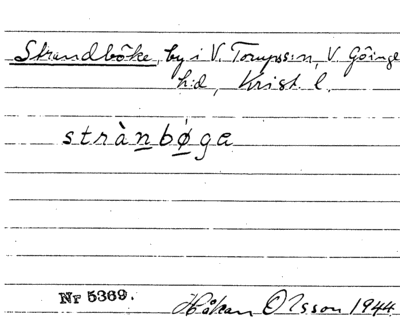 Strandböke, by i V. Torups:n, V. Göinge
h:d, Krist. l.
strànbø̀ga
Nr 5369.
Håkan Olsson 1944.